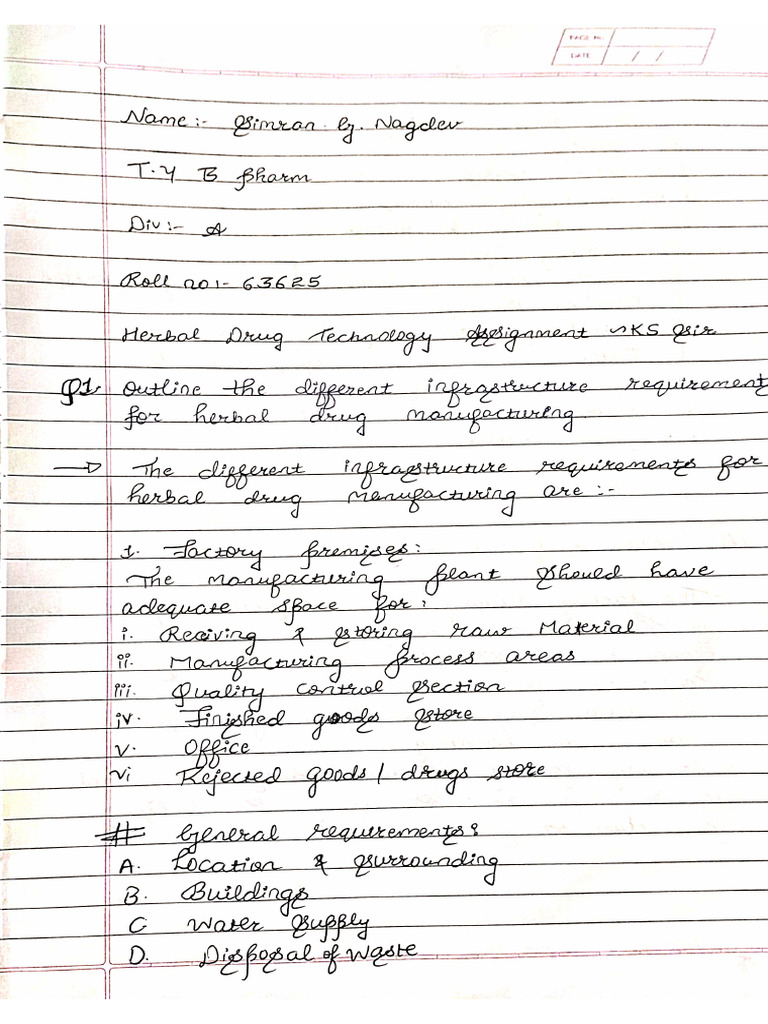 PAGE No.
DATE / /
Name:- Simran G. Nagdev
T.Y B Pharm
Div:- A
Roll no:- 63625
Herbal Drug Technology Assignment ~KS Sir
Q1. Outline the different infrastructure requirement
for herbal drug manufacturing
→ The different infrastructure requirements for
herbal drug manufacturing are:-
1. Factory premises:
The manufacturing plant should have
adequate space for:
i. Receiving & storing raw Material
ii. Manufacturing process areas
iii. Quality control section
iv. Finished goods store
v. Office
vi Rejected goods / drugs store
# General requirements:
A. Location & surrounding
B. Buildings
C Water supply
D. Disposal of Waste